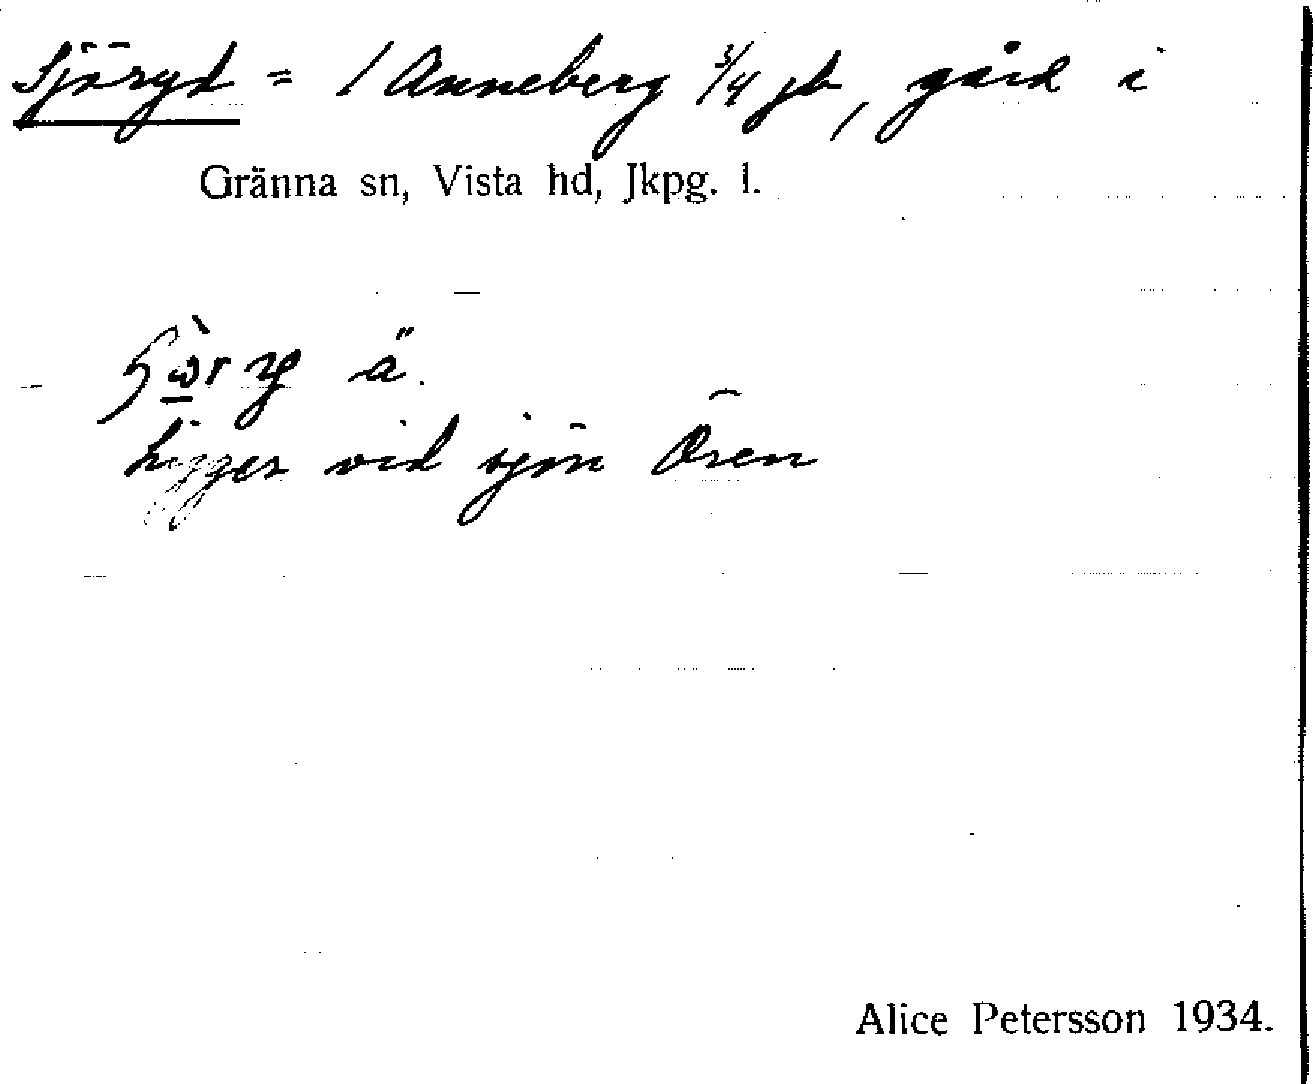 Sjöryd = / Anneberg 3/4 jb, gård i
Gränna sn, Vista hd, Jkpg. l.
ä.
Ligger vid sjön Ören
Alice Petersson 1934.